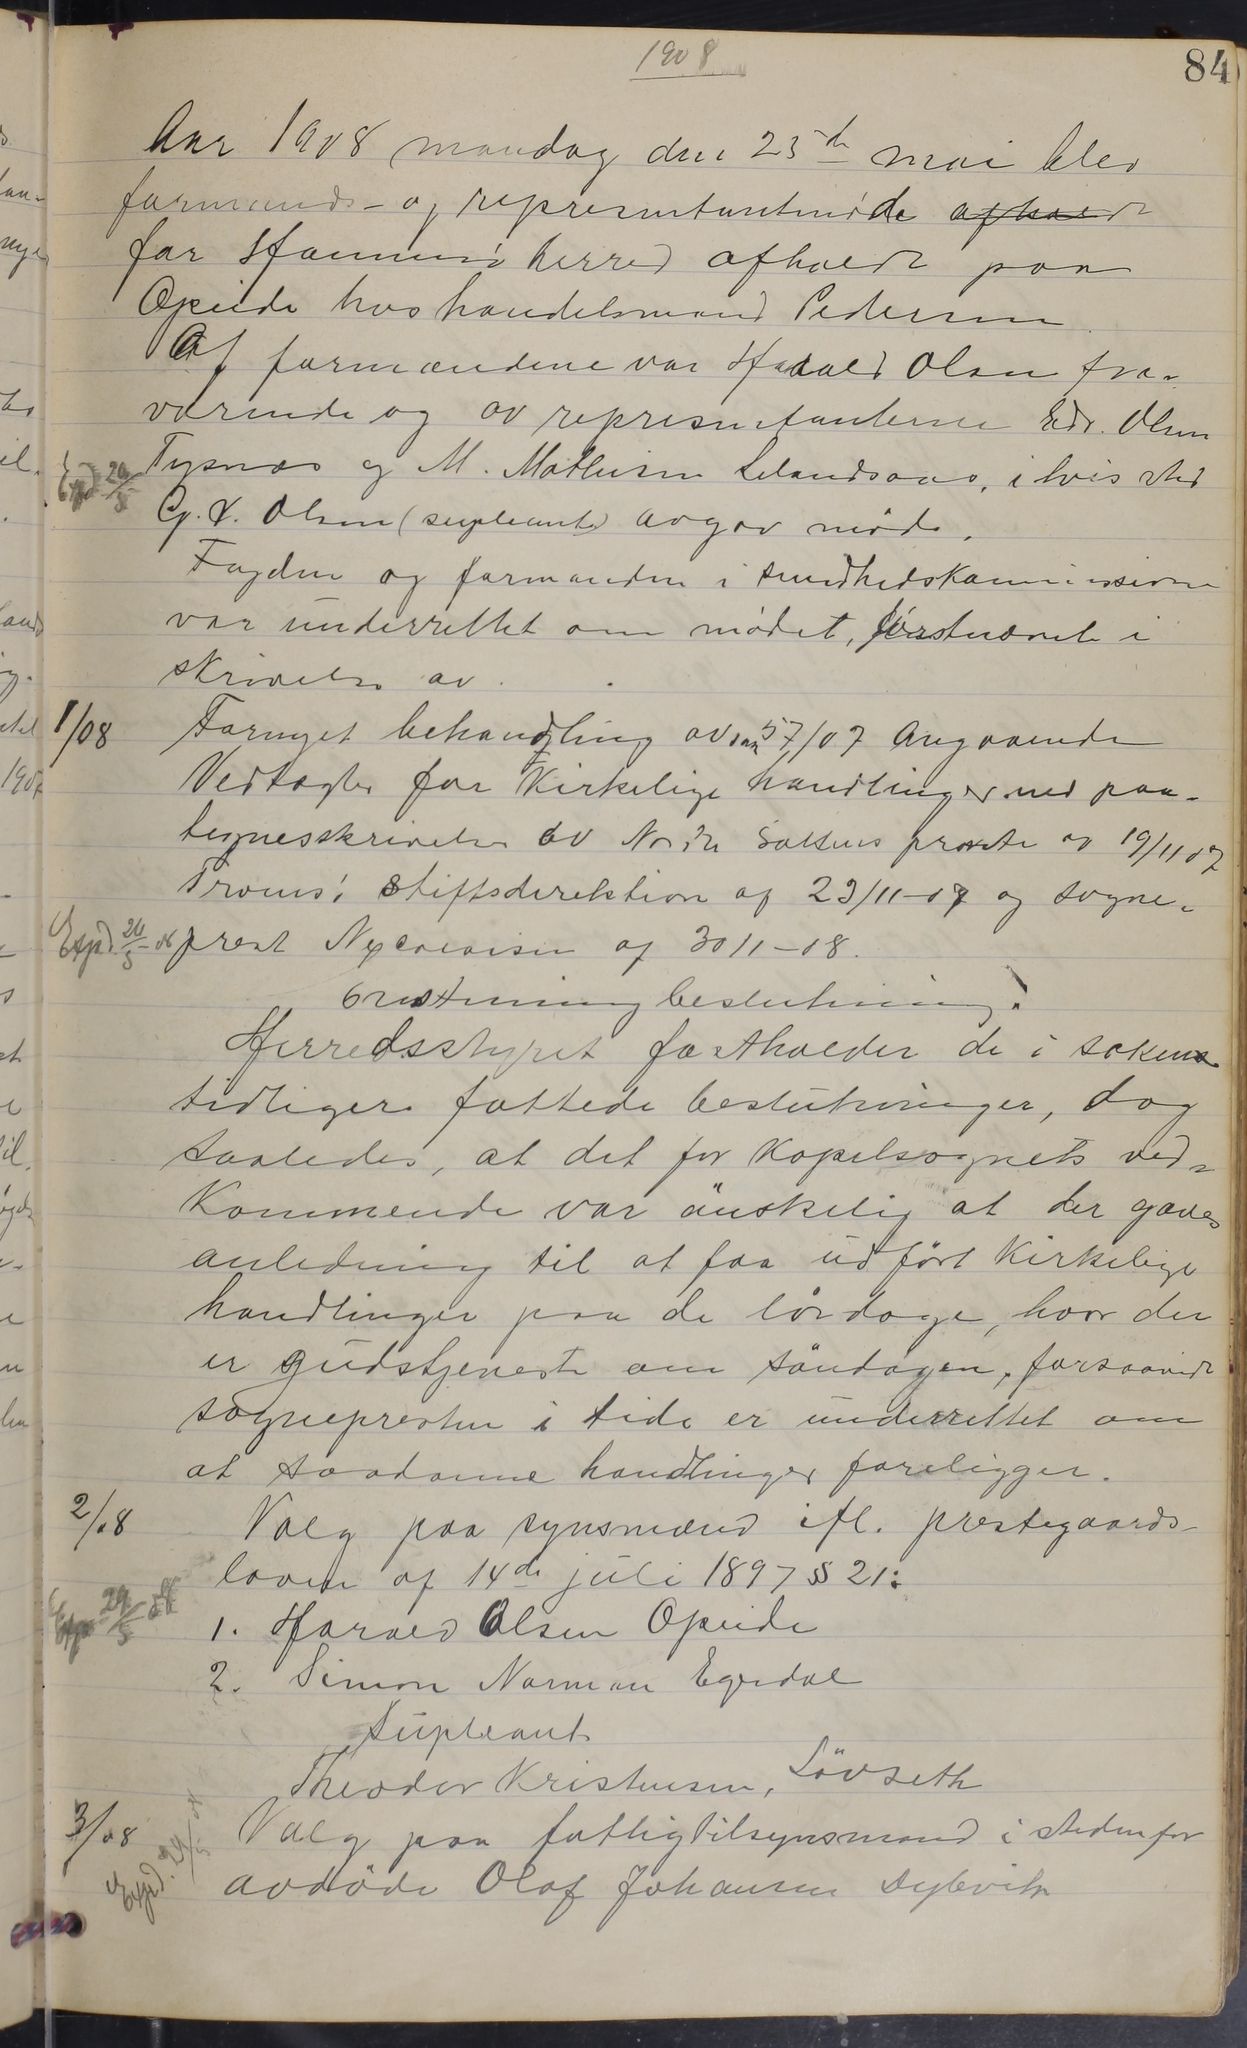 1908
84
Aar 1908 mandag den 25de mai blev
formands- og representantmøde afholdt
for Hammerø herred afholdt paa
Opeide hos handelsmand Pedersen
Af formændene var Harald Olsen fra-
værende og av representanterne Edv. Olsen
Tysnæs og M. Mathisen Lilandsaas, i hvis sted
Expd 26/5
G. L. Olsen (supleant) avgav møde.
Fogden og formanden i sundhedskommissionen
var underrettet om mødet, førstnævnte i
skrivelse av .
1/08
Fornyet behandling av sak 57/07 Angaaende
Vedtægter for Kirkelige handlinger med paa-
tegnesskrivelse av Nordre Saltens proste av 19/11 07
Tromsø Stiftsdirektion af 23/11-07 og sogne-
Expd. 26/5-08
prest Nycovaisen af 30/1-08.
Enstemmig beslutning:
Herredsstyret fastholder de i sakens
tidligere fattede beslutninger, dog
saaledes, at det for Kapelsognets ved-
Kommende var ønskelig at der gaves
anledning til at faa udført Kirkelige
handlinger paa de lørdage, hvor der
er gudstjeneste om søndagen, forsaavidt
sognepresten i tide er underrettet om
at saadanne handlinger foreligger.
2/08
Valg paa synsmænd ifl. prestegaards-
loven af 14de juli 1897 § 21:
Expd 29/5 08
1. Harald Olsen Opeide
2. Simon Norman Egedal
Supleant
Theodor Kristensen, Løvseth
3/08
Valg paa fattigtilsynsmand i stedenfor
Expd. 29/5 08
avdøde Olaf Johansen Dybvik